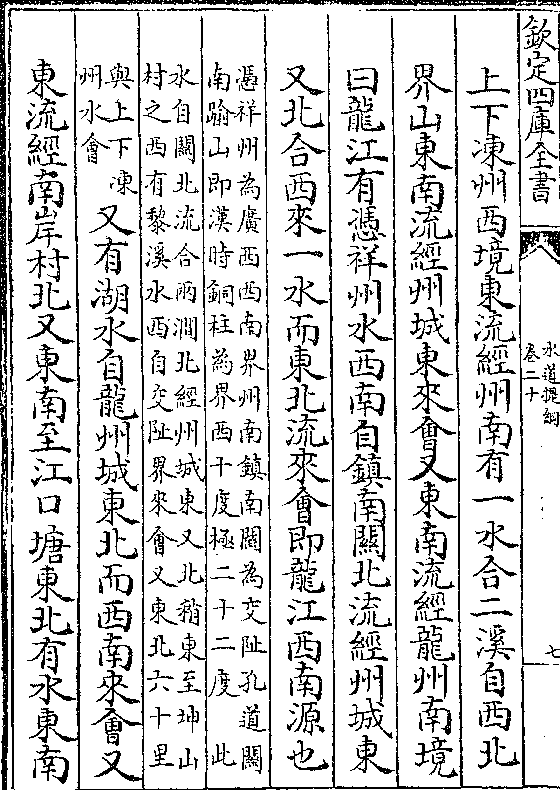 欽定四庫全書
水道提綱
卷二十
七
上下凍州西境東流經州南有一水合二溪自西北
界山東南流經州城東來會又東南流經龍州南境
曰龍江有憑祥州水西南自鎮南關北流經州城東
又北合西來一水而東北流來會即龍江西南源也
憑祥州為廣西西南界州南鎮南關為交阯孔道關
南踰山即漢時銅柱為界西十度極二十二度 此
水自關北流合兩澗北經州城東又北稍東至坤山
村之西有黎溪水西自交阯界來會又東北六十里
與上下凍
州水會
又有湖水自龍州城東北而西南來會又
東流經南岸村北又東南至江口塘東北有水東南